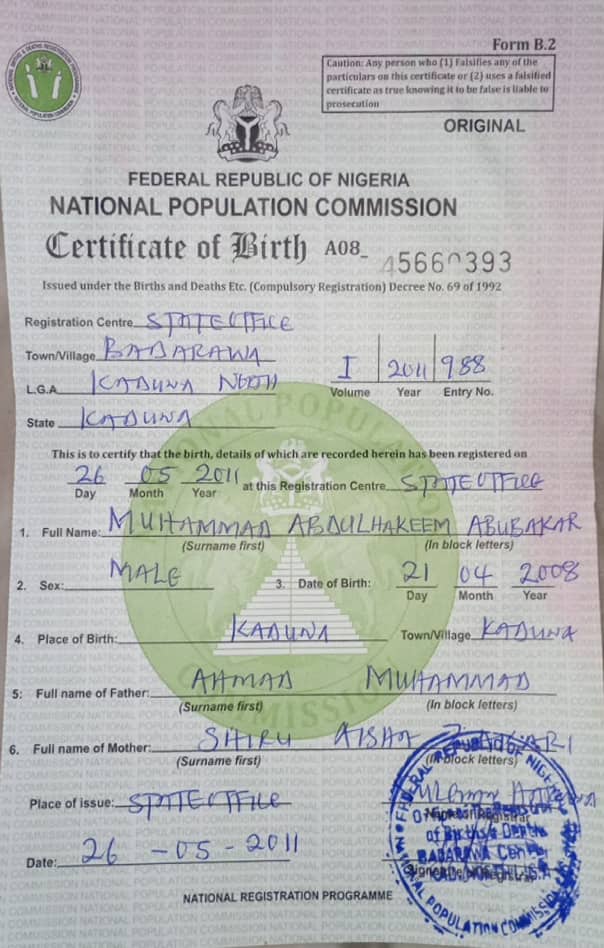 Form B.2
Caution: Any person who (1) Falsifies any of the
particulars on this certificate or (2) uses a falsified
certificate as true knowing it to be false is liable to
prosecution
ORIGINAL
FEDERAL REPUBLIC OF NIGERIA
NATIONAL POPULATION COMMISSION
Certificate of Birth A08_ 45660393
Issued under the Births and Deaths Etc. (Compulsory Registration) Decree No. 69 of 1992
Registration Centre STATE OFFICE
Town/Village BADARAWA
I 2011 988
L.G.A. KADUNA NORTH
Volume Year Entry No.
State KADUNA
This is to certify that the birth, details of which are recorded herein has been registered on
26 05 2011 at this Registration Centre STATE OFFICE
Day Month Year
1. Full Name: MUHAMMAD ABDULHAKEEM ABUBAKAR
(Surname first) (In block letters)
2. Sex: MALE 3. Date of Birth: 21 04 2008
Day Month Year
4. Place of Birth: KADUNA Town/Village KADUNA
5: Full name of Father: AHMAD MUHAMMAD
(Surname first) (In block letters)
6. Full name of Mother: SHIRU AISHA
(Surname first) (In block letters)
Place of issue: STATE OFFICE
Date: 26-05-2011
of Births & Deaths
BADARAWA Center
NATIONAL POPULATION COMMISSION
FEDERAL REPUBLIC OF NIGERIA
NATIONAL REGISTRATION PROGRAMME